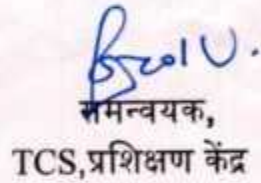 समन्वयक,
TCS,प्रशिक्षण केंद्र